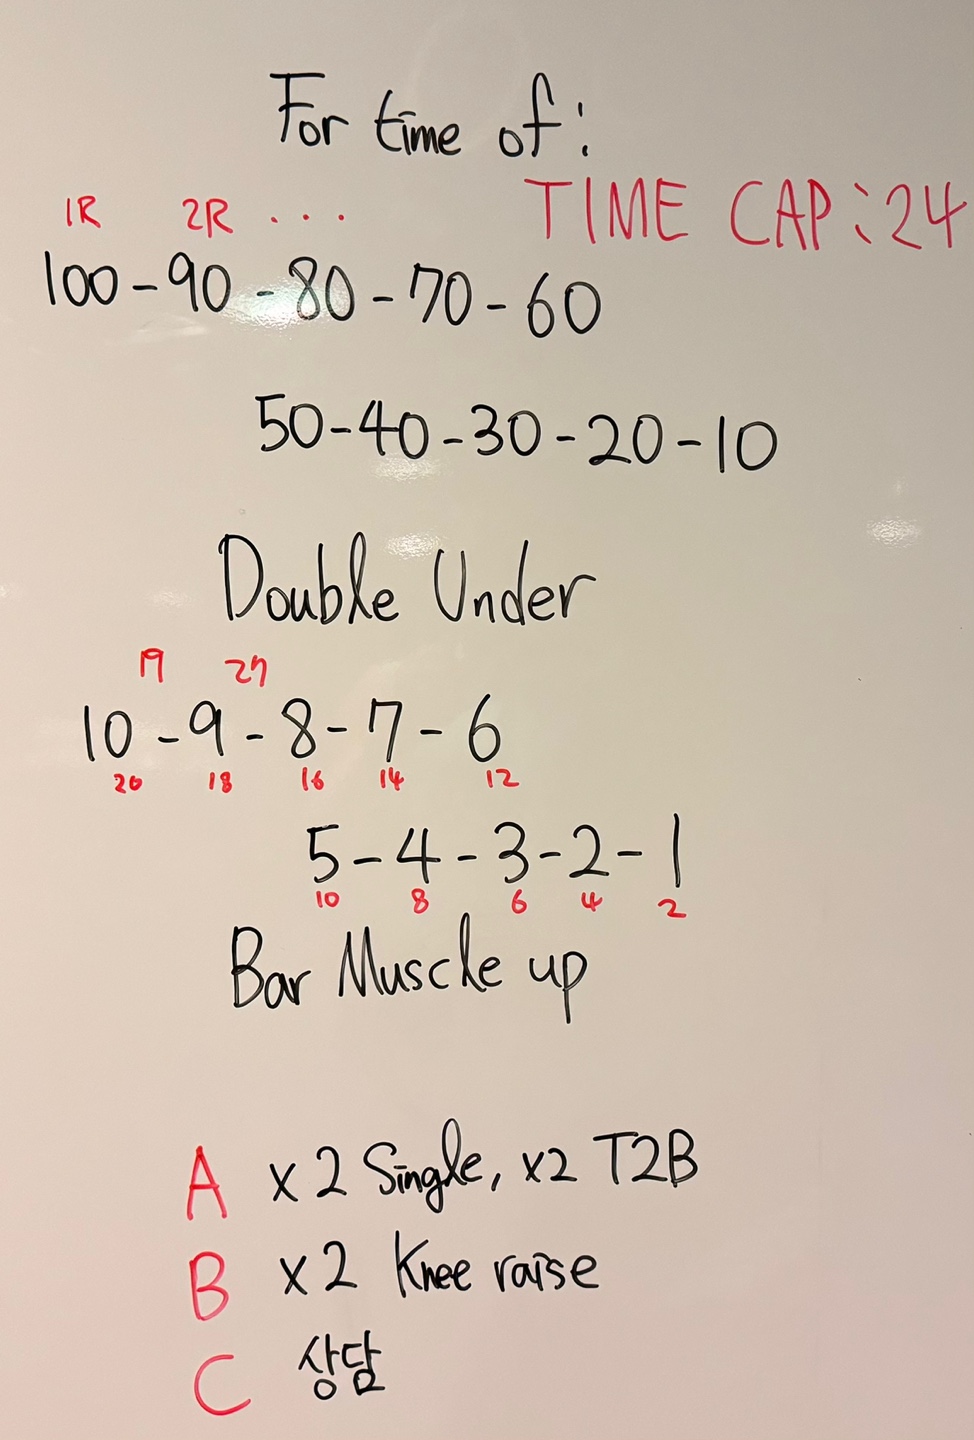 For time of:
TIME CAP:24
1R 2R ...
100-90-80-70-60
50-40-30-20-10
Double Under
19 27
10-9-8-7-6
20 18 16 14 12
5-4-3-2-1
10 8 6 4 2
Bar Muscle up
A x2 Single, x2 T2B
B x2 Knee raise
C 상담